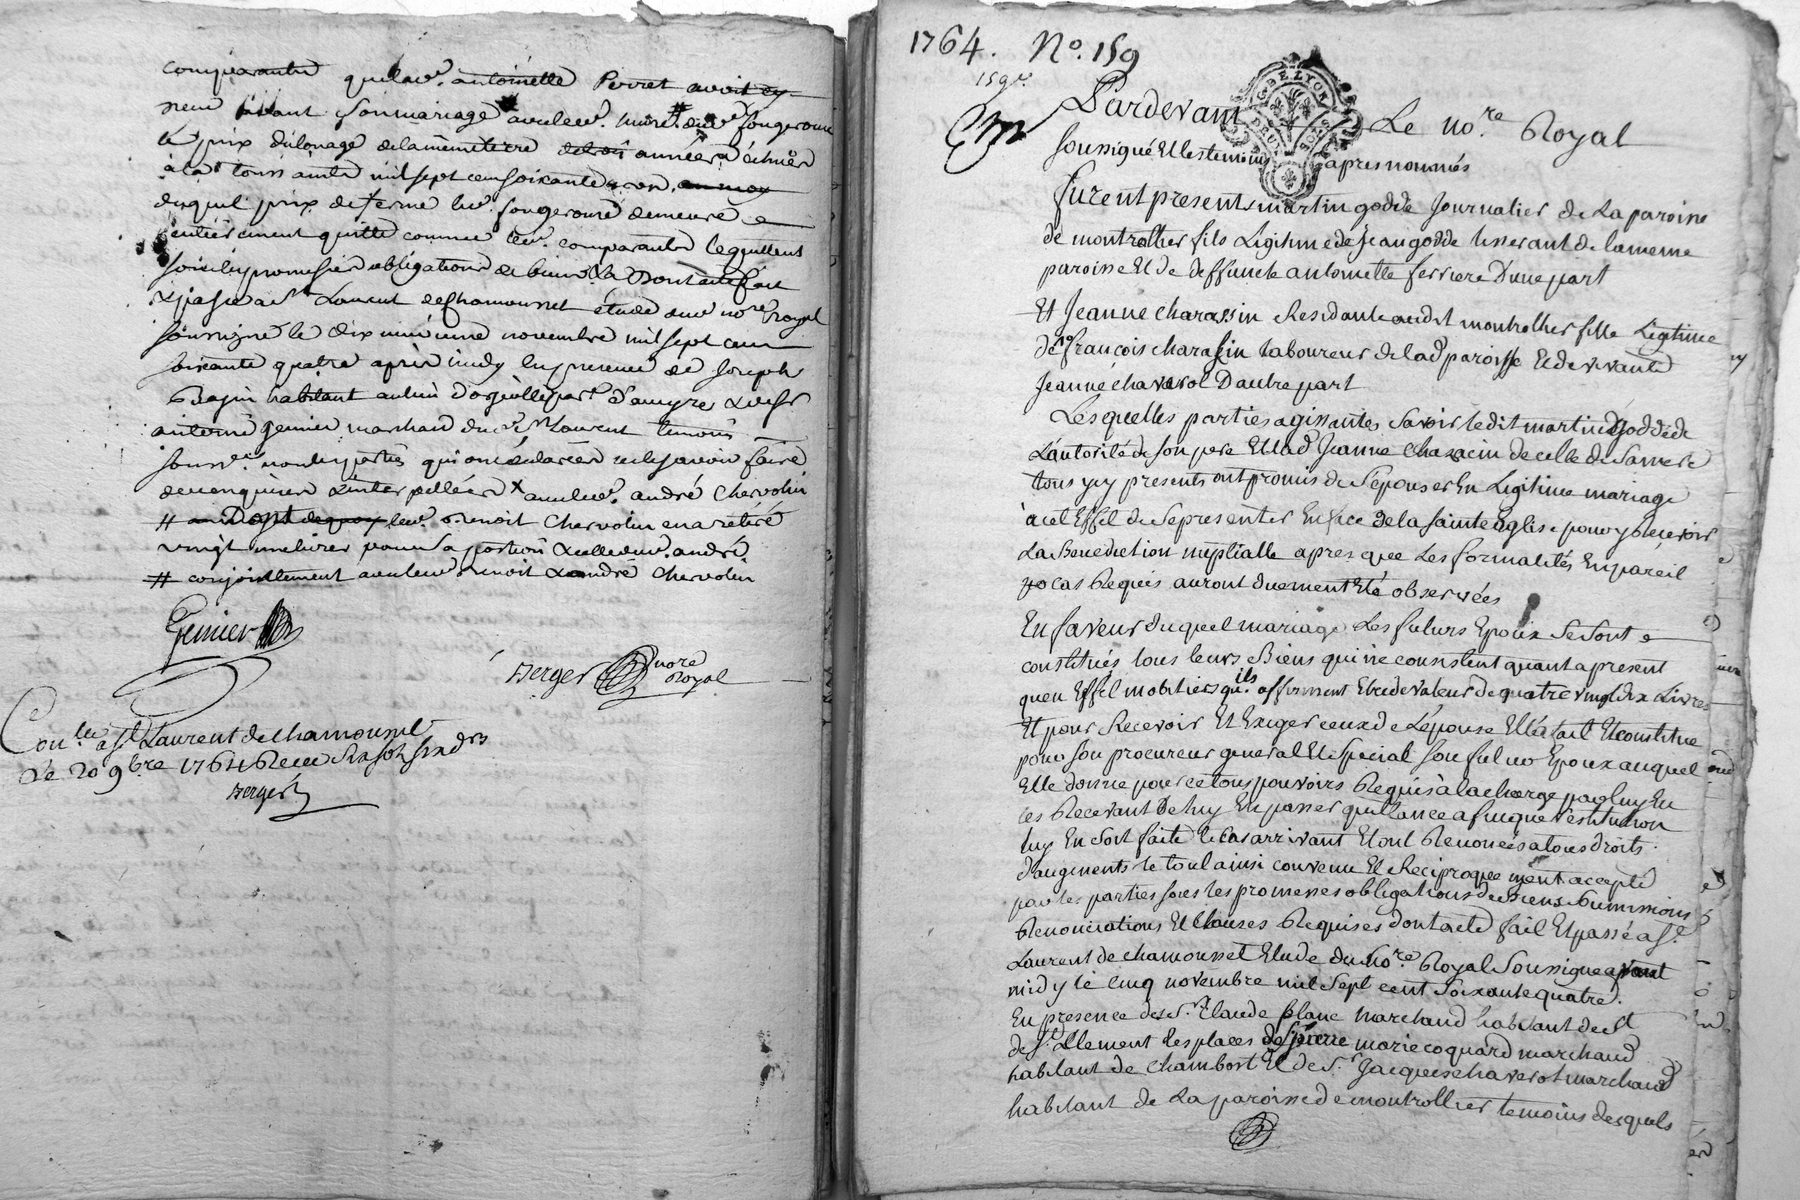 comparantes quelad. antoinette Perret avoit
avant son mariage avec led. fougerouse
le prix du louage de la même terre années à échûes
à la toussaints mil sept cens soixante
duquel prix de ferme led. fougerouse demeure
entièrement quitte comme led. comparants
soubs les promesses obligations de biens Dont acte fait
& passé a St Laurent de chamousset étude du nore royal
soussigné le dix neuvieme novembre mil sept cent
soixante quatre après midy en presence de Joseph
Bajin habitant au lieu d'
antoine genier marchand dud. St Laurent temoins
sous. non les parties qui ont déclaré ne le scavoir faire
de ce enquises & interpellées x avec led. andré Chervolin
# led. Benoit Chervolin en a retiré
vingt une livres pour sa portion & celle dud. andré
# conjointement avec led. Benoit & andré Chervolin
Genier
Berger nore Royal
Con.lé a St Laurent de chamousset
Le 20 9bre 1764 Receu
Berger
1764. No. 159
159e
G. DE LYON DEUX SOLS
Pardevant Le no.re Royal
soussigné Et les temoins apres nommés
furent presents martin godde Journalier de La paroisse
de montrottier fils Legitime de Jean godde tisserant de la meme
paroisse Et de deffuncte antoinette ferriere D'une part
Et Jeanne charassin Residante audit montrottier fille Legitime
de francois charassin laboureur de lad paroisse Et de vivante
Jeanne chaverol D'autre part
Lesquelles parties agissantes savoir ledit martin Godde de
L'autorité de son pere Et lad Jeanne characin de celle de sa mere
tous icy presents ont promis de s'épouser En Legitime mariage
à cet Effet de se presenter En face de la sainte Eglise pour y Recevoir
La Benediction nuptialle apres que les formalités En pareil
cas Requis auront duement Eté observées
En faveur duquel mariage Les futurs Epoux se sont
constitués tous leurs Biens qui ne consistent quant a present
qu'en Effet mobiliers qu'ils affirment Etre de valeur de quatre vingt dix Livres
Et pour Recevoir Et Exiger ceux de L'épouse Elle fait Et constitue
pour son procureur general Et special son futur Epoux auquel
Elle donne pour ce tous pouvoirs Requis à la charge par luy En
les Recevant De luy En passer quittance afin que restitution
luy En soit faite le cas arrivant Et ont Renoncés a tous droits
d'augments le tout ainsi convenu Et Reciproquement accepté
par les parties sous les promesses obligations de Biens summissions
Renonciations Et Clauses Requises dont acte fait Et passé a St
Laurent de chamousset Etude du No.re Royal Soussigné avant
midy le cinq novembre mil Sept cent Soixante quatre.
En presence de s.r Claude Blanc marchand habitant de St
de St Clement les places de pierre marie coquard marchand
habitant de Chambost Et de s.r Jacques chaverot marchand
habitant de La paroisse de montrottier temoins desquels